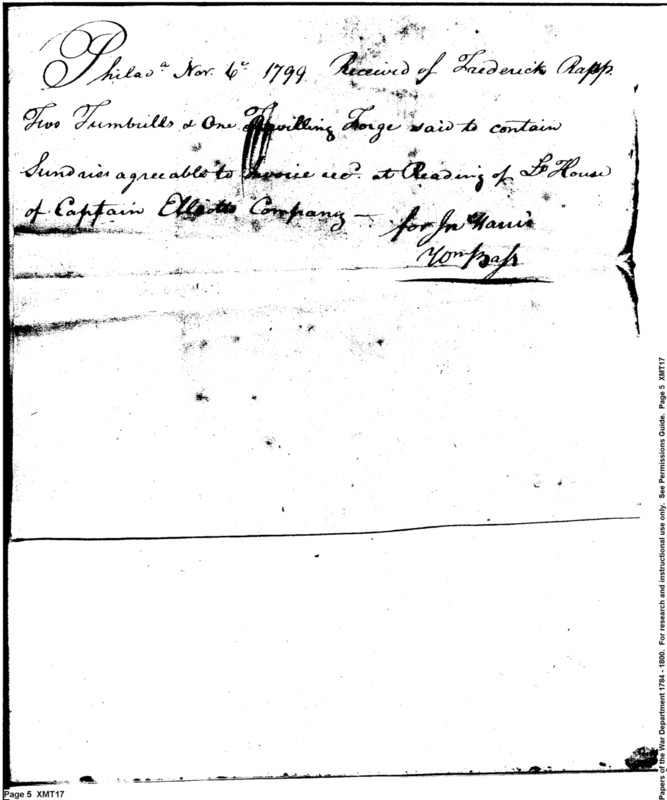 Philada. Nov. 6th 1799 Received of Frederick Rapp.
Two Tumbrills & One Travilling Forge said to contain
Sundries agreeable to Invoice recd. at Reading of Lt House
of Captain Elliotts Company —
for Jn Harris
Page 5 XMT17
Papers of the War Department 1784 - 1800. For research and instructional use only. See Permissions Guide. Page 5 XMT17